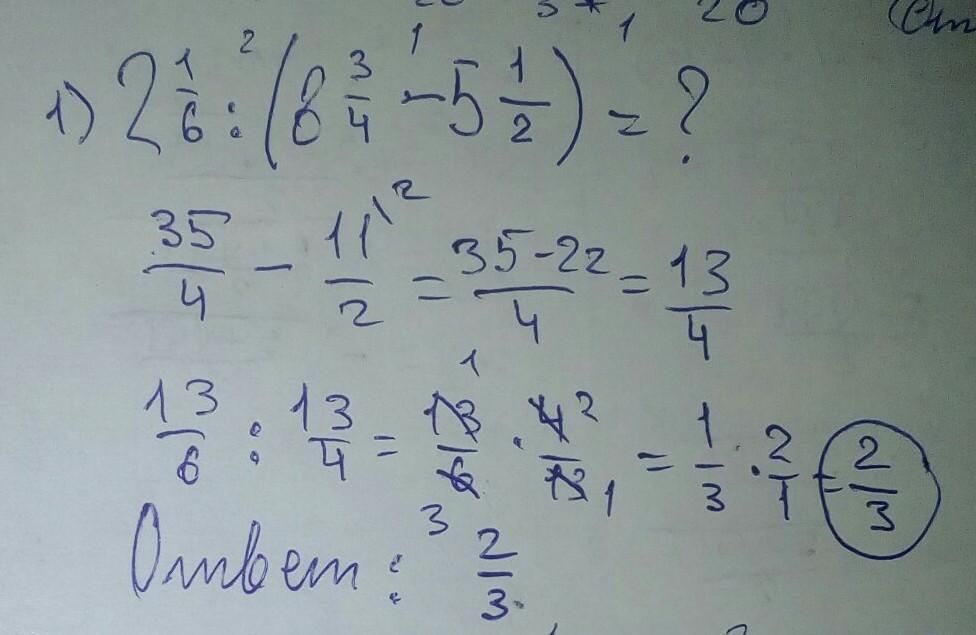 20 (От
1) 2 1/6 :² (8 3/4 -¹ 5 1/2) = ?
35/4 - 11/2 \2 = 35-22/4 = 13/4
13/6 : 13/4 = 13¹/6₃ · 4²/13₁ = 1/3 · 2/1 = 2/3
Ответ: 2/3